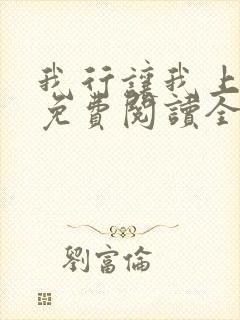 我行讓我上
免費閱讀全
劉富倫